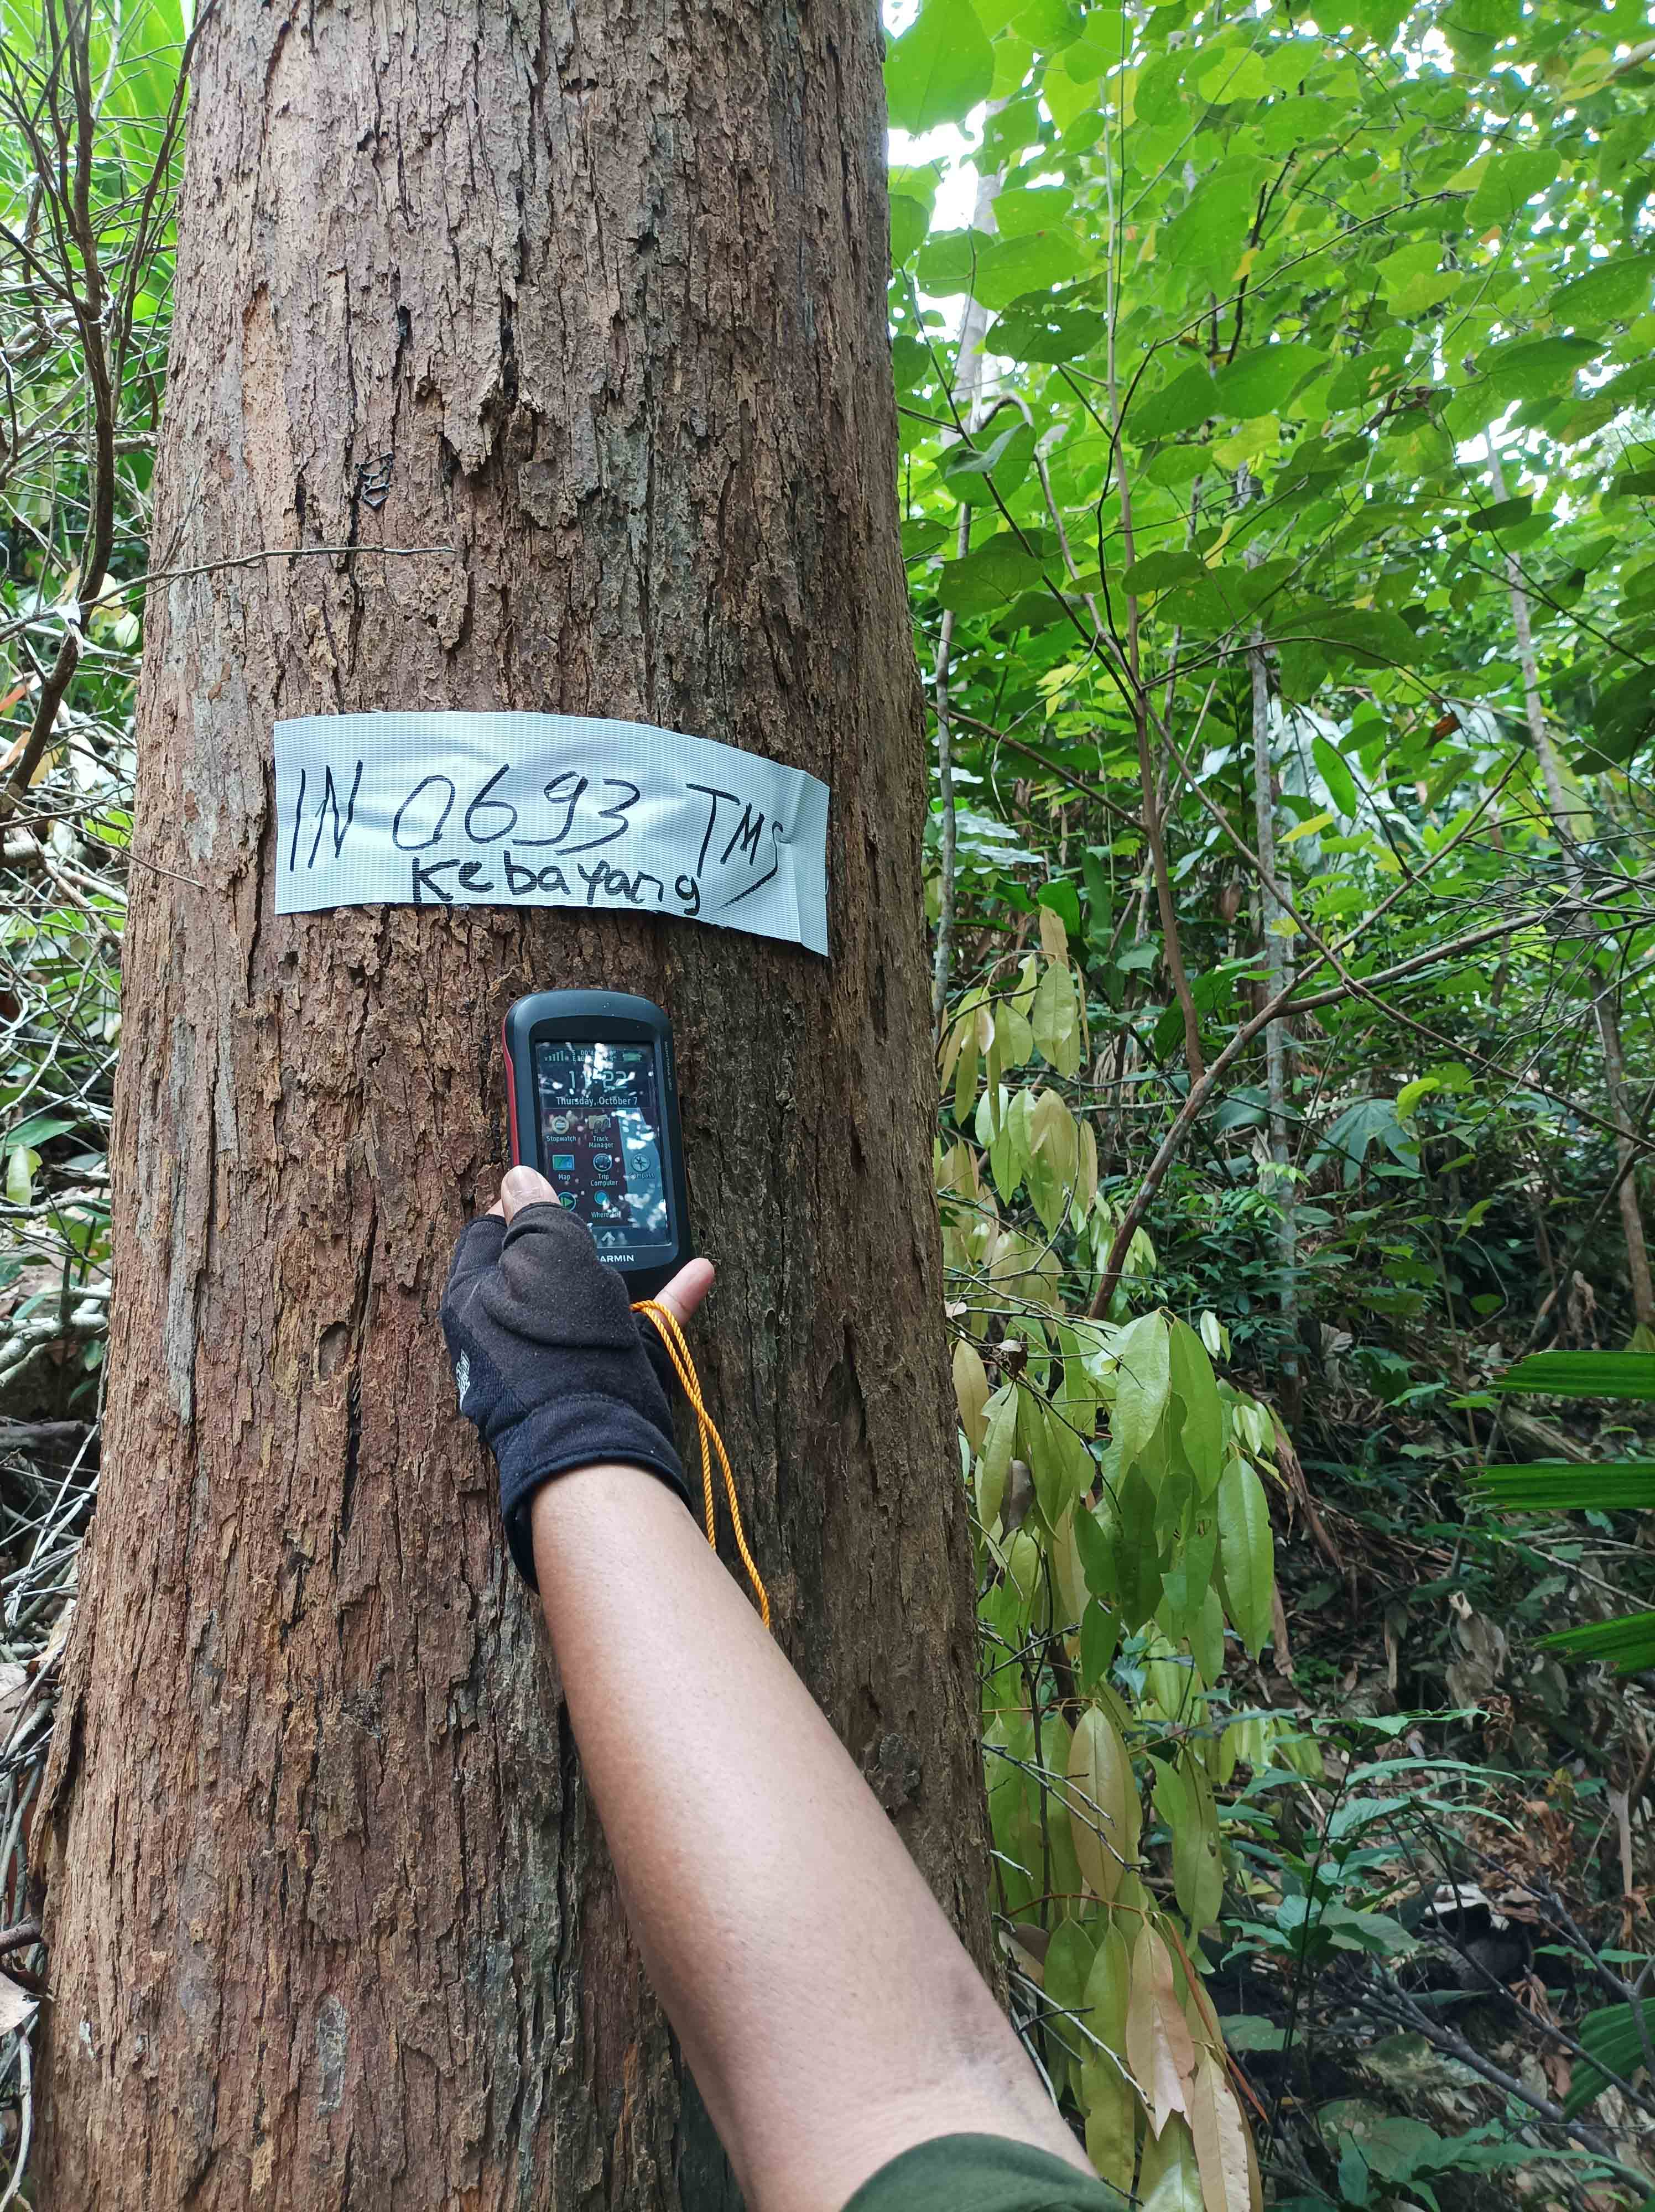 IN 0693 TMS
Kebayang
Thursday, October 7
Stopwatch
Track
Manager
Map
Trip
Computer
GARMIN